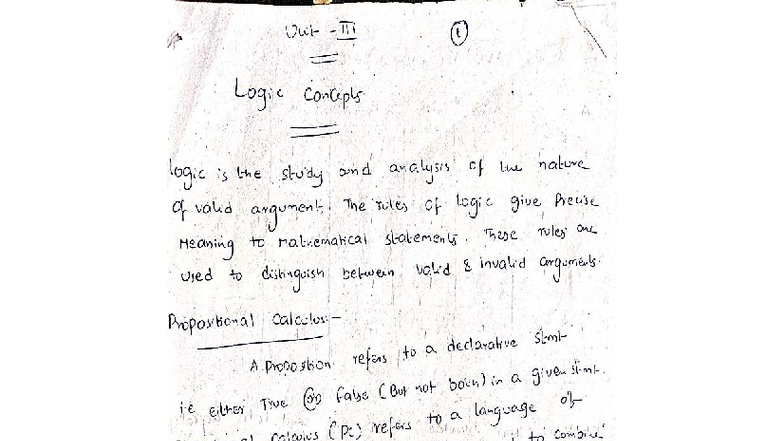 Unit - III
1
Logic Concepts
Logic is the study and analysis of the nature
of valid argument. The rules of logic give Precise
Meaning to Mathematical statements. These rules are
used to distinguish between valid & invalid arguments.
Propositional Calculus:-
A proposition refers to a declarative stmt
i.e either True (or) false (But not both) in a given stmt.
Calculus (PC) refers to a language of
to combine